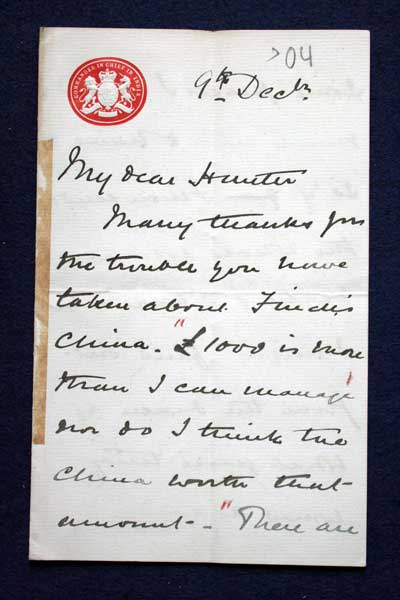 COMMANDER IN CHIEF IN INDIA
>04
9th Decbr
My dear Hunter
Many thanks for
the trouble you have
taken about Findis
China. "£1000 is more
than I can manage
nor do I think the
China worth that
amount." There are